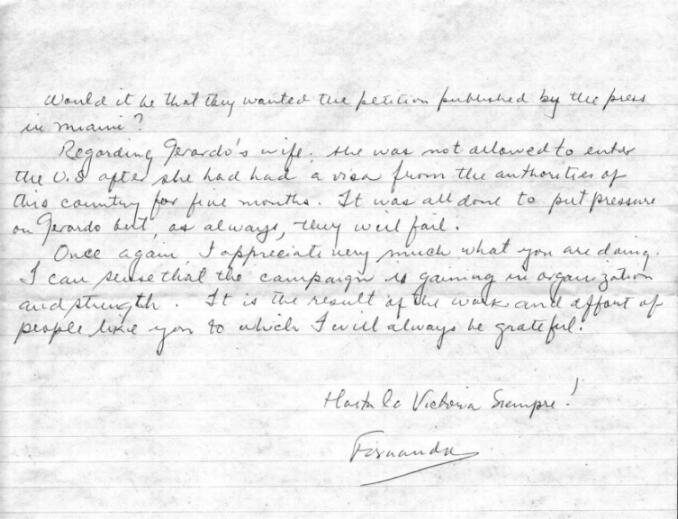 Would it be that they wanted the petition published by the press
in Miami?
Regarding Gerardo's wife, she was not allowed to enter
the U.S after she had had a visa from the authorities of
this country for five months. It was all done to put pressure
on Gerardo but, as always, they will fail.
Once again, I appreciate very much what you are doing.
I can sense that the campaign is gaining in organization
and strength. It is the result of the work and effort of
people like you to which I will always be grateful.
Hasta la Victoria Siempre!
Fernando